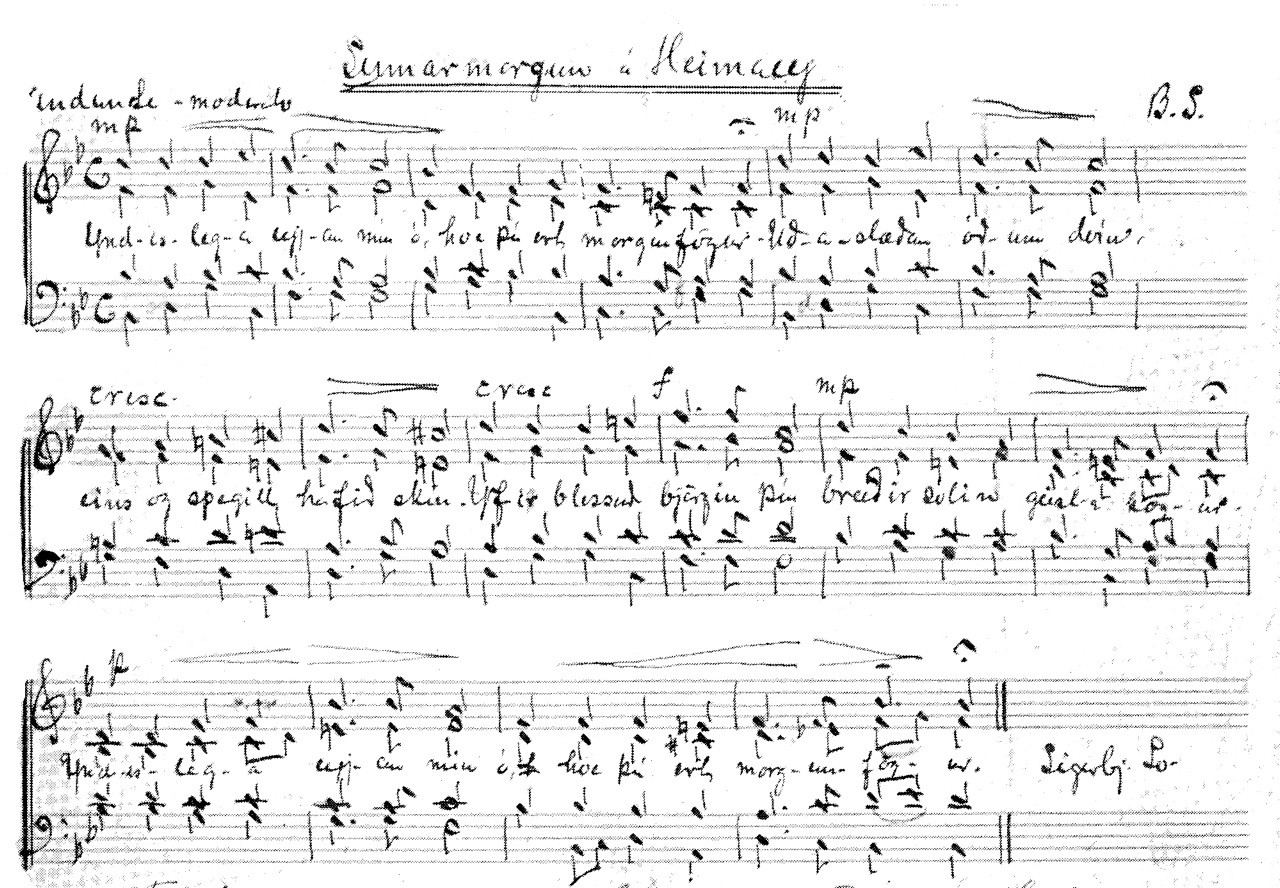 Sumarmorgun á Heimaey
Andante - moderato
B. S.
mp mp
Ynd-is-leg-a eyj-an mín ó, hve þú ert morgunfögur. Úð-a-slæðan óð-um dvín,
cresc. cresc f mp
eins og spegill hafið skín. Yf-ir blessuð björgin þín breiðir sólin geisl-a kög-ur.
p
Ynd-is-leg-a eyj-an mín ó, hve þú ert morg-un-fög-ur. Sigurbj. Sv-